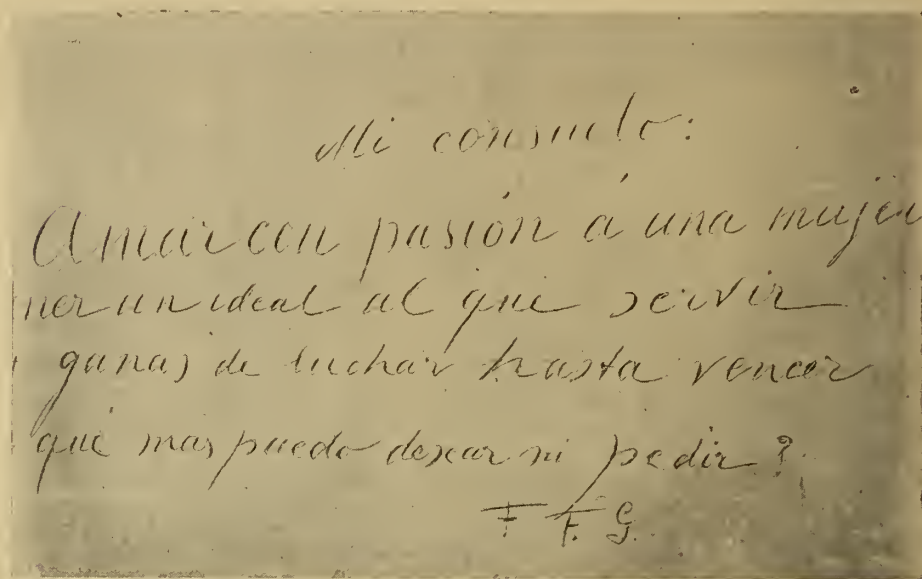 Mi consuelo:
Amar con pasión á una mujer
ner un ideal al que servir
y ganas de luchar hasta vencer
qué mas puedo desear ni pedir?
F. F. G.